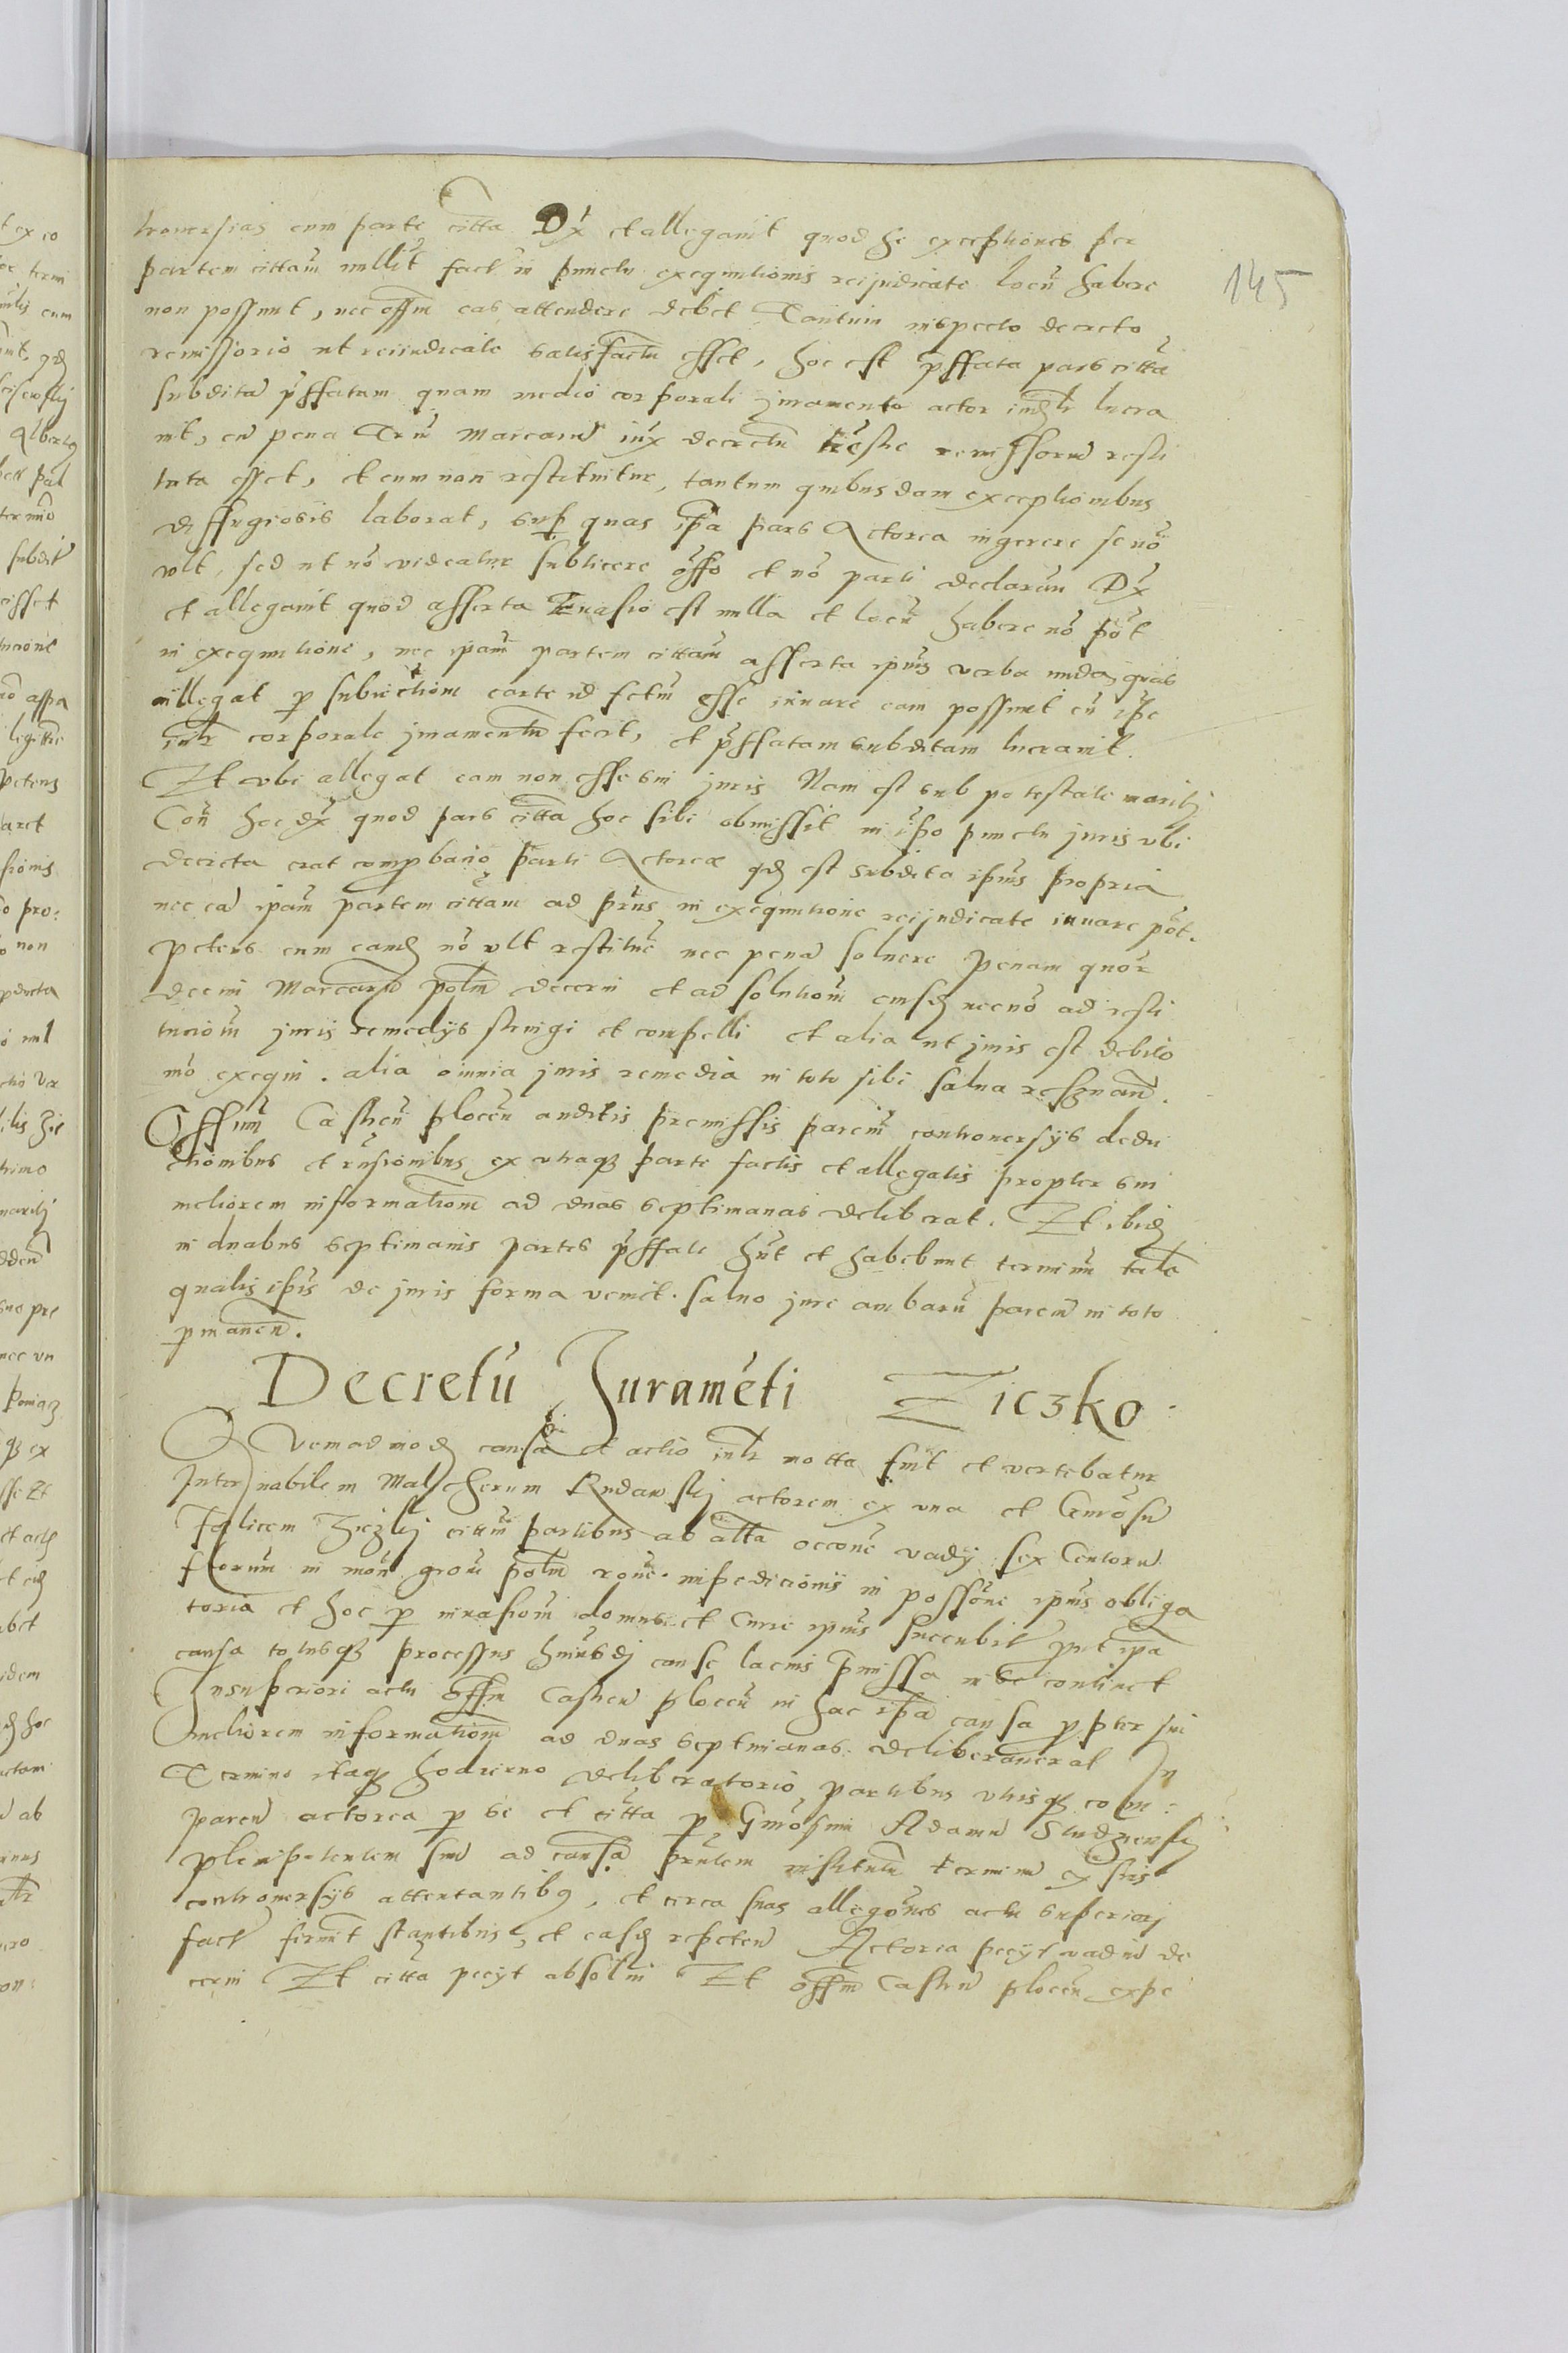 troversias cum parte citta Dx et allegavit quod he exceptiones per
partem cittam nullit fact in punctu exequutionis reijudicate locu habere
non possunt, nec offm eas attendere debet Tantum inspecto decreto
remissorio ut reiiudicate satisfactu esset, hoc est pffata pars citta
subdita pffatam quam medio corporali juramento actor lucra
vit, cu pena Triu marcaru iux decretu remissoriu resti
tuta esset, et cum non restituitur, tantum quibusdam exceptionibus
diffugiosis laborat, sup quas ipa pars Actorea ingerere se no
vlt, sed ut no videatur subticere offo et no parti declaran Dx
et allegavit quod asserta Evasio est nulla et locu habere no pot
in exequutione, nec ipam partem cittam asserta ipius verba nuda, quas
allegat p subiectiom carte id fctm esse iuvare eam possunt cu ipe
corporale juramentu fecit, et pffatam subditam lucravit.
Et vbi allegat eam non esse sui juris Nam est sub potestate maritj
Con hoc dx quod pars citta hoc sibi obmissit in ipo punctu juris vbi
decreta erat compbatio parti Actoree qd est subdita ipius propria
nec ea ipam partem cittam ad prius in exequutione reijudicate iuvare pot.
petens cum eand no vlt restitue nec pena solvere penam quor
decem Marcaru polm decerni et ad solutiom eiusd necno ad resti
tuciom juris remedijs stringi et compelli et alia ut juris est debito
mo exequi. alia omnia juris remedia in toto sibi salva reservan.
Offium Castren plocen auditis premissis parciu controversijs dedu
ctionibus et ex utraq parte factis et allegatis propter sui
meliorem informatiom ad duas septimanas deliberat. Et ibid
in duabus septimanis partes pffate hnt et habebunt terminu tale
qualis ipis de juris forma venit. salvo jure ambaru parciu in toto
pmanen.
Decretu Jurameti Ziczko
Quemadmod causa et actio motta fuit et vertebatur
Inter nobilem Malcherum Rudawskij actorem ex una et Gmosu
Falicem cittm partibus ab alta occone vadij sex Centoru
florum in mon grom polm rone inpedicionis in possone ipius obliga
toria et hoc p invasiom domus et Curie ipius succubit put ipa
causa totusq processus huiusdj cause lacius pmissa in se continet
In superiori actu offm Castren plocen in hac ipa causa ppter sui
meliorem informatiom ad duas septimanas deliberaverat In
Termino itaq hodierno deliberatorio, partibus utrisq com:
paren actorea p se et citta p Gmosum Adamu
plenipotentem suu ad causa prntem terminu ex suis
controversijs attentantibq, et circa suas allegones actu superiorj
fact firmit stantibus, et easd repeten Actorea pecijt vadiu de
cerni Et citta pecijt absolvi Et offm Castren plocen expe
145